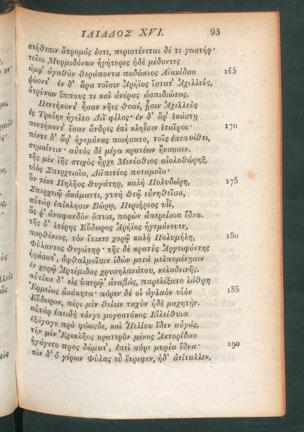 ΙΛΙΑΔΟΣ XVI. 93
στήθεσιν ἄτρομός ἐστι, περιστένεται δέ τε γαστήρ·
τοῖοι Μυρμιδόνων ἡγήτορες ἠδὲ μέδοντες
ἀμφ' ἀγαθὸν θεράποντα ποδώκεος Αἰακίδαο 165
ῥώοντ'· ἐν δ' ἄρα τοῖσιν Ἀρήϊος ἵστατ' Ἀχιλλεὺς,
ὀτρύνων ἵππους τε καὶ ἀνέρας ἀσπιδιώτας.
Πεντήκοντ' ἦσαν νῆες θοαὶ, ᾗσιν Ἀχιλλεὺς
ἐς Τροίην ἡγεῖτο Διῒ φίλος· ἐν δ' ἄρ' ἑκάστῃ
πεντήκοντ' ἔσαν ἄνδρες ἐπὶ κληῗσιν ἑταῖροι· 170
πέντε δ' ἄρ' ἡγεμόνας ποιήσατο, τοῖς ἐπεποίθει,
σημαίνειν· αὐτὸς δὲ μέγα κρατέων ἤνασσεν.
τῆς μὲν ἰῆς στιχὸς ἦρχε Μενέσθιος αἰολοθώρηξ,
υἱὸς Σπερχειοῖο, Διϊπετέος ποταμοῖο·
ὃν τέκε Πηλῆος θυγάτηρ, καλὴ Πολυδώρη, 175
Σπερχειῷ ἀκάμαντι, γυνὴ θεῷ εὐνηθεῖσα,
αὐτὰρ ἐπίκλησιν Βώρῳ, Περιήρεος υἷι,
ὅς ῥ' ἀναφανδὸν ὄπυιε, πορὼν ἀπερείσια ἕδνα.
τῆς δ' ἑτέρης Εὔδωρος Ἀρήϊος ἡγεμόνευεν,
παρθένιος, τὸν ἔτικτε χορῷ καλὴ Πολυμήλη, 180
Φύλαντος θυγάτηρ· τῆς δὲ κρατὺς Ἀργειφόντης
ἠράσατ', ὀφθαλμοῖσιν ἰδὼν μετὰ μελπομένῃσιν
ἐν χορῷ Ἀρτέμιδος χρυσηλακάτου, κελαδεινῆς.
αὐτίκα δ' εἰς ὑπερῷ' ἀναβὰς, παρελέξατο λάθρη
Ἑρμείας ἀκάκητα· πόρεν δέ οἱ ἀγλαὸν υἱὸν 185
Εὔδωρον, πέρι μὲν θείειν ταχὺν ἠδὲ μαχητήν.
αὐτὰρ ἐπειδὴ τόνγε μογοστόκος Εἰλείθυια
ἐξάγαγε πρὸ φόωσδε, καὶ Ἠελίου ἴδεν αὐγὰς,
τὴν μὲν Ἐχεκλῆος κρατερὸν μένος Ἀκτορίδαο
ἠγάγετο πρὸς δώματ', ἐπεὶ πόρε μυρία ἕδνα· 190
τὸν δ' ὁ γέρων Φύλας εὖ ἔτρεφεν, ἠδ' ἀτίταλλεν,